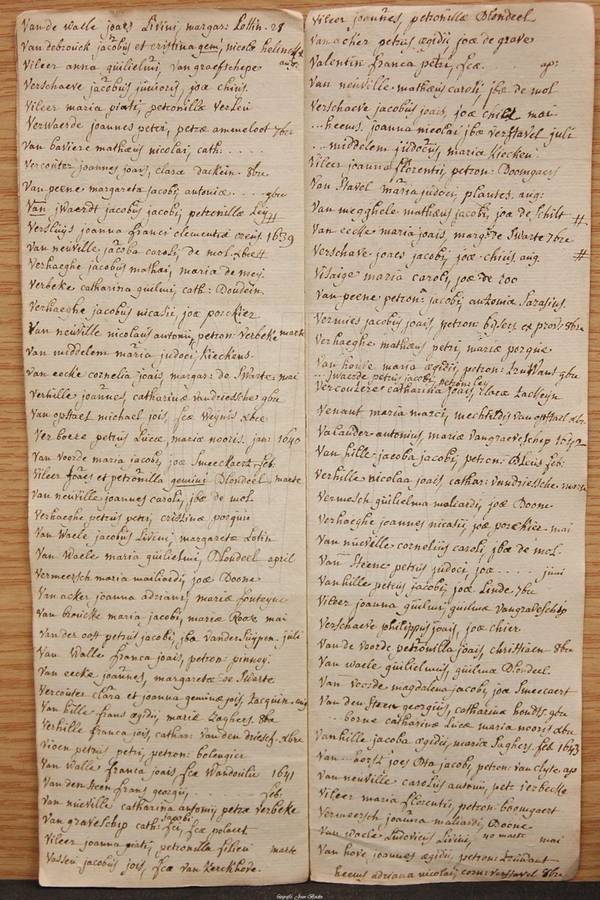 Van de Walle joais Livini, margar: Lottin. 28
Van debrouck jacobus et cristina gem, nicolai
Vileer anna guilielmi, Van graefschepe aug:
Verschaeve jacobus junioris, joa chius.
Vileer maria piati, petronilla Verleu
Verwaerde joannes petri, petræ ammeloot 7bre
Van baviere mathæus nicolai, cath: . . . .
Vercouter joannes, joais, clara Dackein. 8bre
Van peene margareta jacobi, antoniæ . . . 9bre
Van Swaerdt jacobus jacobi, petronillæ Ley #
Versluijs joanna franci clementia 1639
Van neuville jacoba caroli, de mol. xbre #
Verhaeghe jacobus mathai, maria de meij.
Verbeke catharina guilmi, cath: Doudein.
Verhaeghe jacobus nicasii, joæ porckier
Van neuville nicolaus antonii, petron: Verbeke marte
Van middelem maria judoci, Kieckens.
Van eecke cornelia joais, margar: de Swarte mai
Verhille joannes, catharinæ vandriessche 9bre
Van opstael michael jois, fcæ Weynis xbre
Verboere petrus Lucæ, mariæ nooris. jan: 1640
Van Voorde maria jacobi, joæ Smeeckaert feb:
Vileer joaes et petronilla gemini Blondeel marte
Van neuville joannes caroli, jbæ de mol
Verhaeghe petrus petri, cristinæ porquie
Van Waele jacobus Livini, margareta Lotin
Van Waele maria guilielmi, Blondeel april
Vermeersch maria maliardi, joæ Boone
Van acker joanna adriani, mariæ fonteyne
Van broucke maria jacobi, mariæ Rooze mai
Van der oost petrus jacobi, jbæ Vander Suijpen. juli
Van Walle franca joais, petron: pinnoy.
Van eecke joannes, margareta de Swarte
Vercouter clara et joanna geminæ jois, Zacquein. aug
Van hille frans ægidii, mariæ Zaghers. 8bre
Verhille franca jois, cathar: Vanden driesch. xbre
Vioen petrus petri, petron: bolengier
Van Walle franca joais fcæ Wandoulie 1641
Van den Steen frans georgii, feb:
Van neuville catharina antonii petræ Verbeke
Van graveschep cath: jacobi, fcæ polaert
Vileer joanna piati, petronilla filieu marte
Vassen jacobus jois, fcæ Van Kerckhove.
Vileer joannes, petronillæ Blondeel
Van acher petrus ægidii, joæ de grave
Valentin franca petri, fcæ . . . . apr:
Van neuville mathæus caroli, jbæ de mol
Verschaeve jacobus joais, joæ chius mai
...heems. joanna nicolai jbæ Verstavel juli
...middelem judocus, maria Kiecken
Vileer joanna florentii, petron: Boomgaers
Van Stavol maria judoci, plantes. aug:
Van megghele mathæus jacobi, joa de Schilt #
Van eecke maria joais, margar: de Swarte 7bre
Verschave joaes jacobi, joæ chius. aug. #
Visaige maria caroli, joæ de roo
Van peene petron: jacobi, antonia Sarasins.
Vermies jacobus joais, petron: 8bre
Verhaeghe mathæus petri, mariæ porquie
Van houve maria ægidii, petron: Druwaens 9bre
Swaerde petrus jacobi petronilla ley
Vercoutere catharina joais, clara Zackeyn
Venant maria marci, mechtildis van opstael xbr.
Valander antonius, mariæ Vangraveschep 1642
Van hille jacoba jacobi, petron: Bleus feb:
Verhille nicolaa joais, cathar: Vandriessche. marte
Vermesch guilielma maliardi, joæ Boone
Verhaeghe joannes nicasii, joæ porchier. mai
Van neuville cornelius caroli, jbæ de mol.
Van Steene petrus judoci, joæ . . . . juni
Vanhille petrus jacobi, joæ Linde 7bre
Vileer joanna guilmi, guilma Vangraveschep
Verschaeve philippus joais, joæ chier.
Van de Voorde petronilla joais, christiaen 8bre
Van Waele guilielmus, guilma Blondeel.
Van Voorde magdalena jacobi, joæ Smeecaert
Van den Steen georgius, catharinæ hondts. 9bre
... borne catharinæ Lucæ maria nooris xbre
Vanhille jacoba ægidii, maria Zaghers. feb. 1643
Van . horst joes Osta jacobi, petron: Van clyte. ap
Van neuville carolus antonii, pet: Verbecke
Vileer maria florentii, petron: boomgaert
Vermeersch joanna maliardi, Boone
Van Waele Ludovicus Livini, no marte mai
Van hove joannes ægidii, petron: Druwant
heems adriana nicolai, corn: Verstavel 8bre